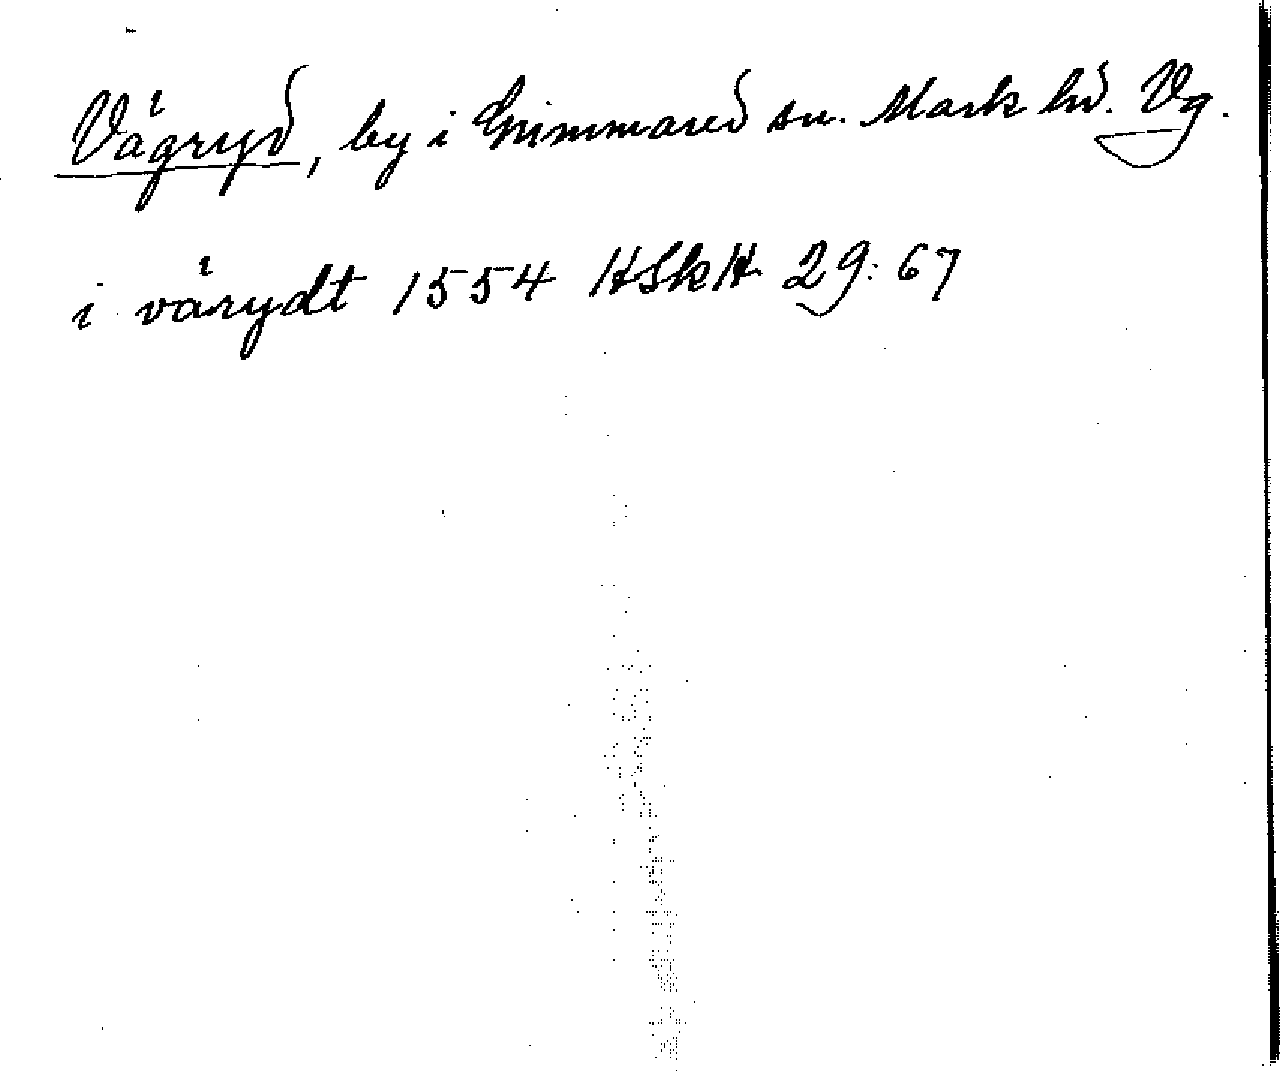 Vägryd, by i Grimmared sn. Mark hd. Vg.
i värydt 1554 HSkH 29: 67